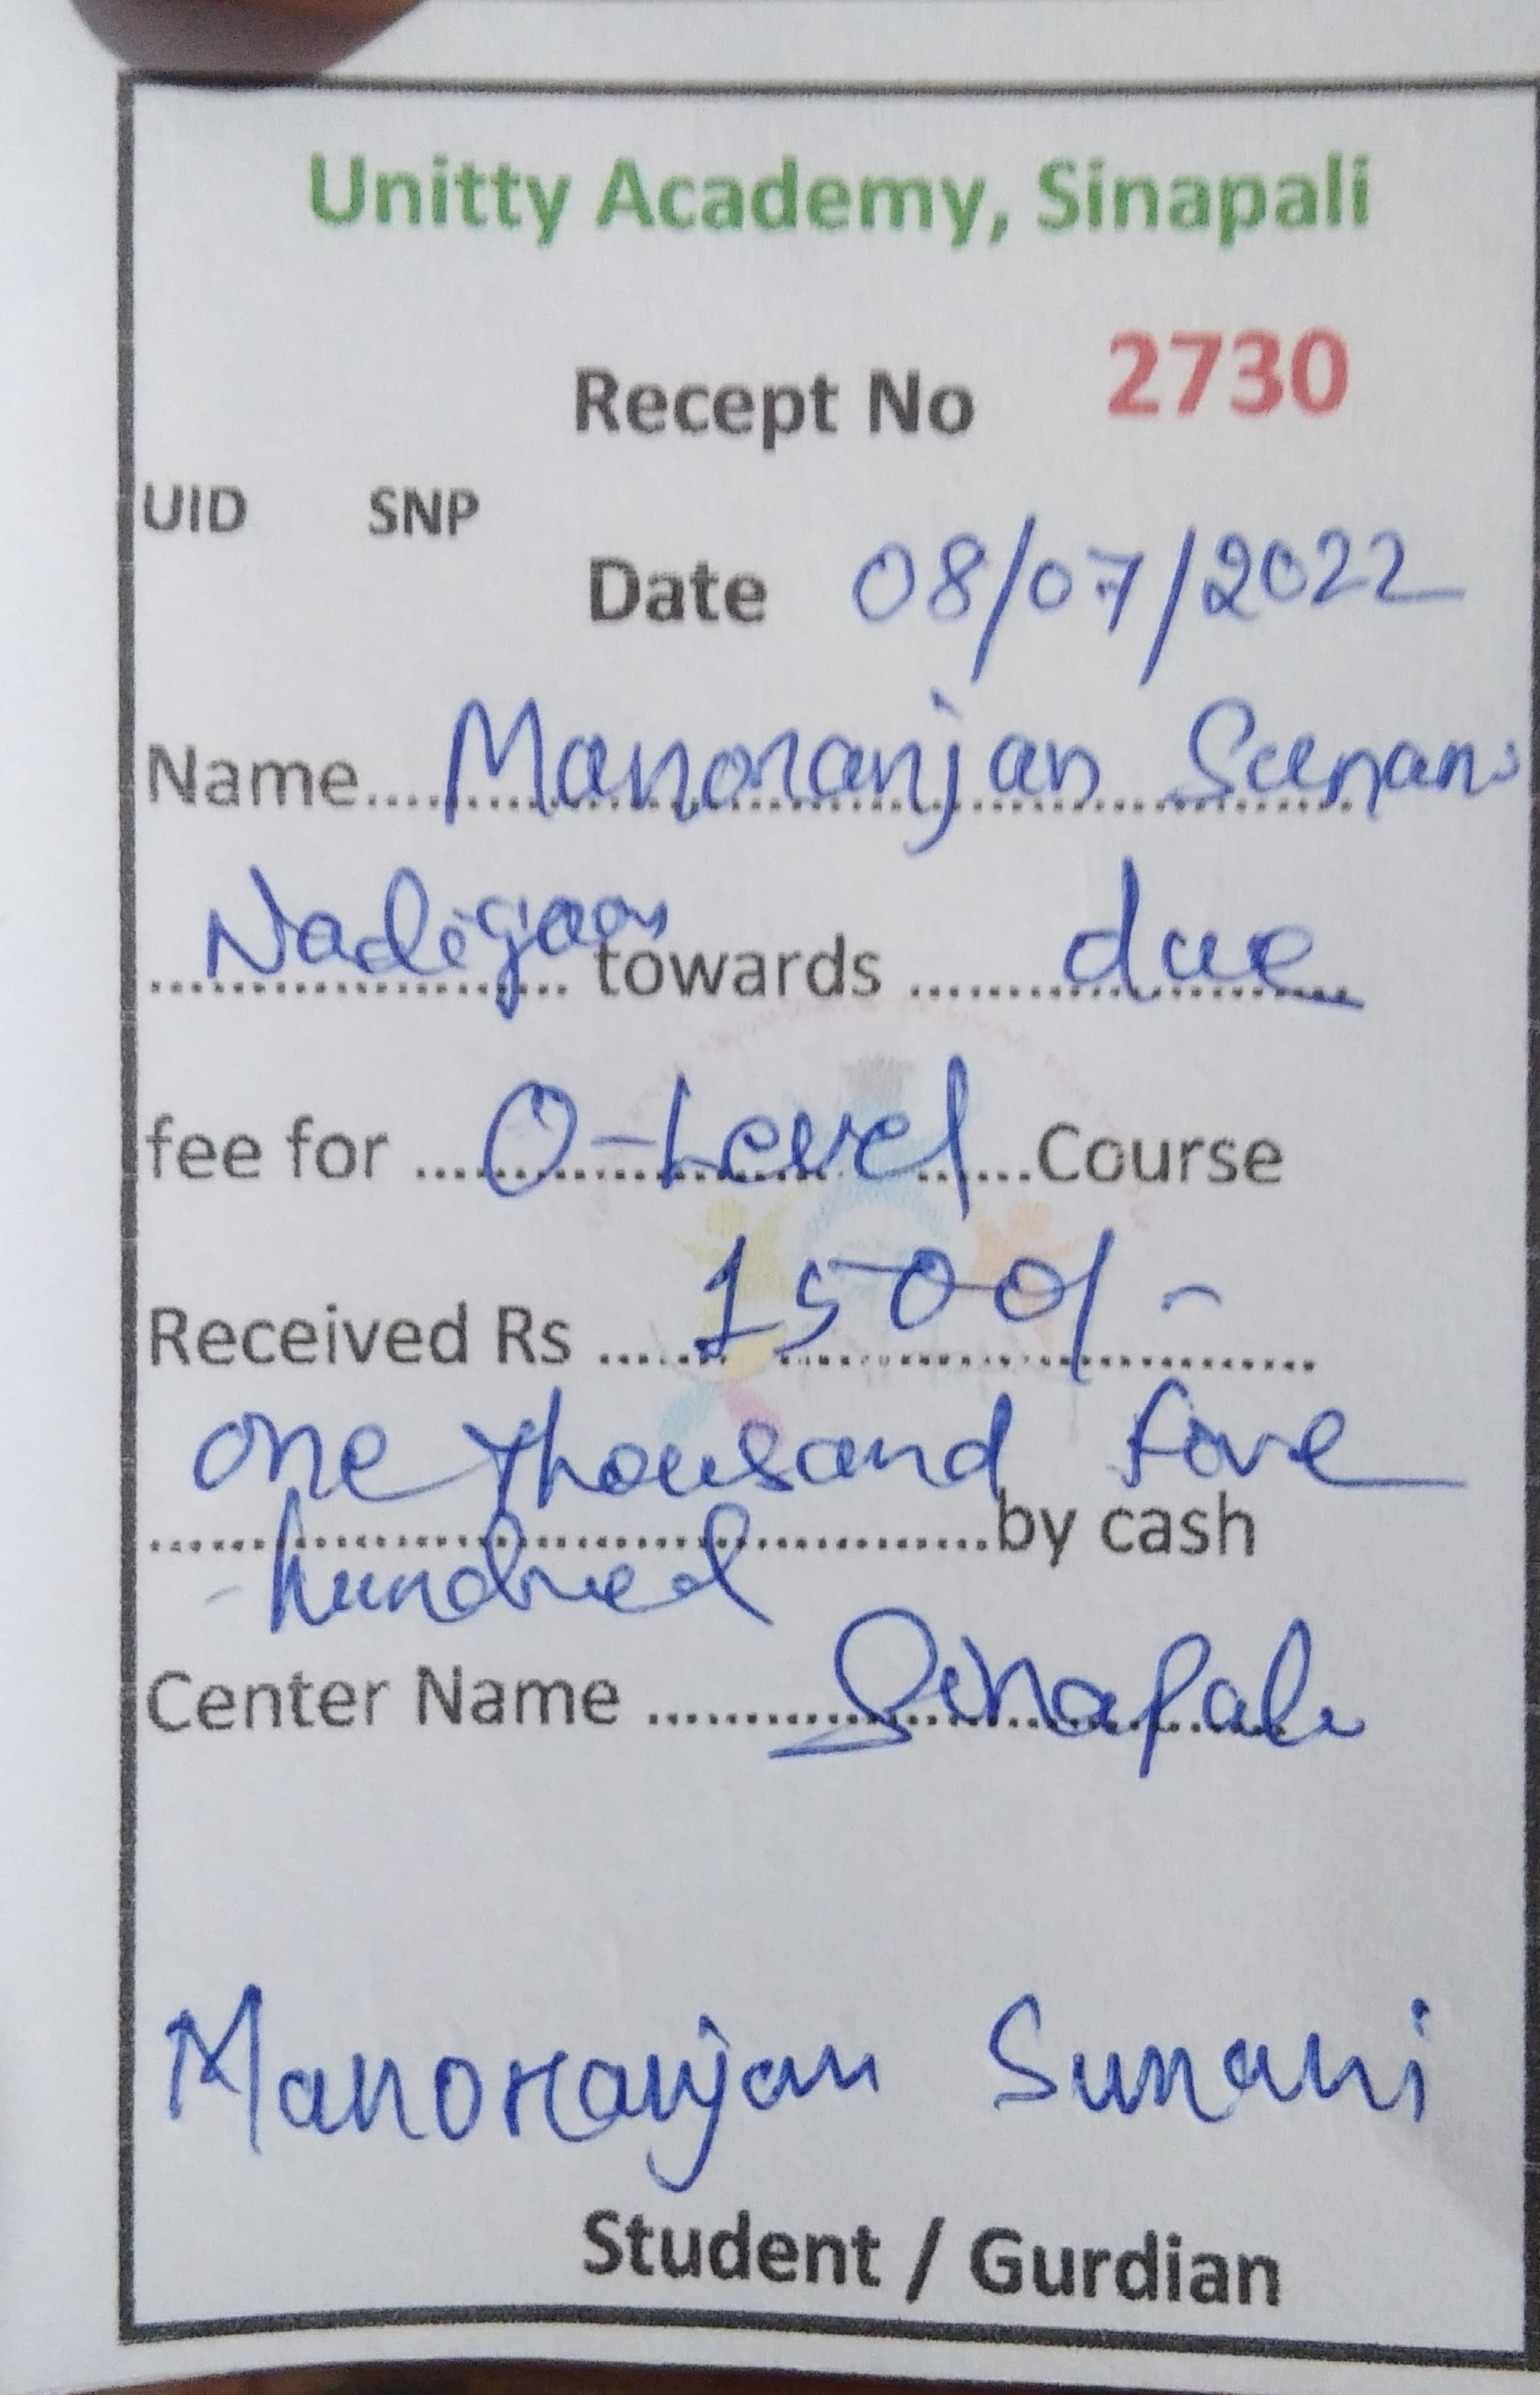 Unitty Academy, Sinapali
Recept No 2730
UID SNP
Date 08/07/2022
Name.... Manoranjan Sunani
Nadigaon towards .... due
fee for .... O-Level ....Course
Received Rs .... 1500/-
one thousand five
....by cash
hundred
Center Name .... Sinapali
Manoranjan Sunani
Student / Gurdian